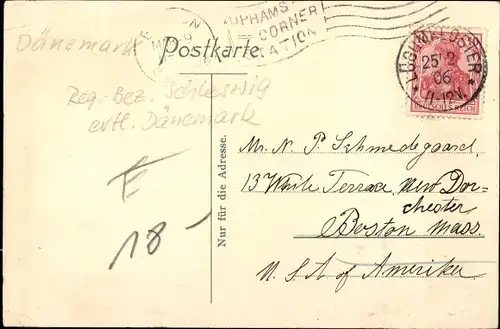 Dänemark
Postkarte.
UPHAMS
CORNER
STATION
LÜGUMKLOSTER
25 2
06
11-12V.
DEUTSCHES REICH
Reg.-Bez. Schleswig
evtl. Dänemark
18-
Nur für die Adresse.
Mr. N. P. Schmedegaard.
13 White Terrace, New Dor-
chester
Boston Mass.
U.S.A of Amerika